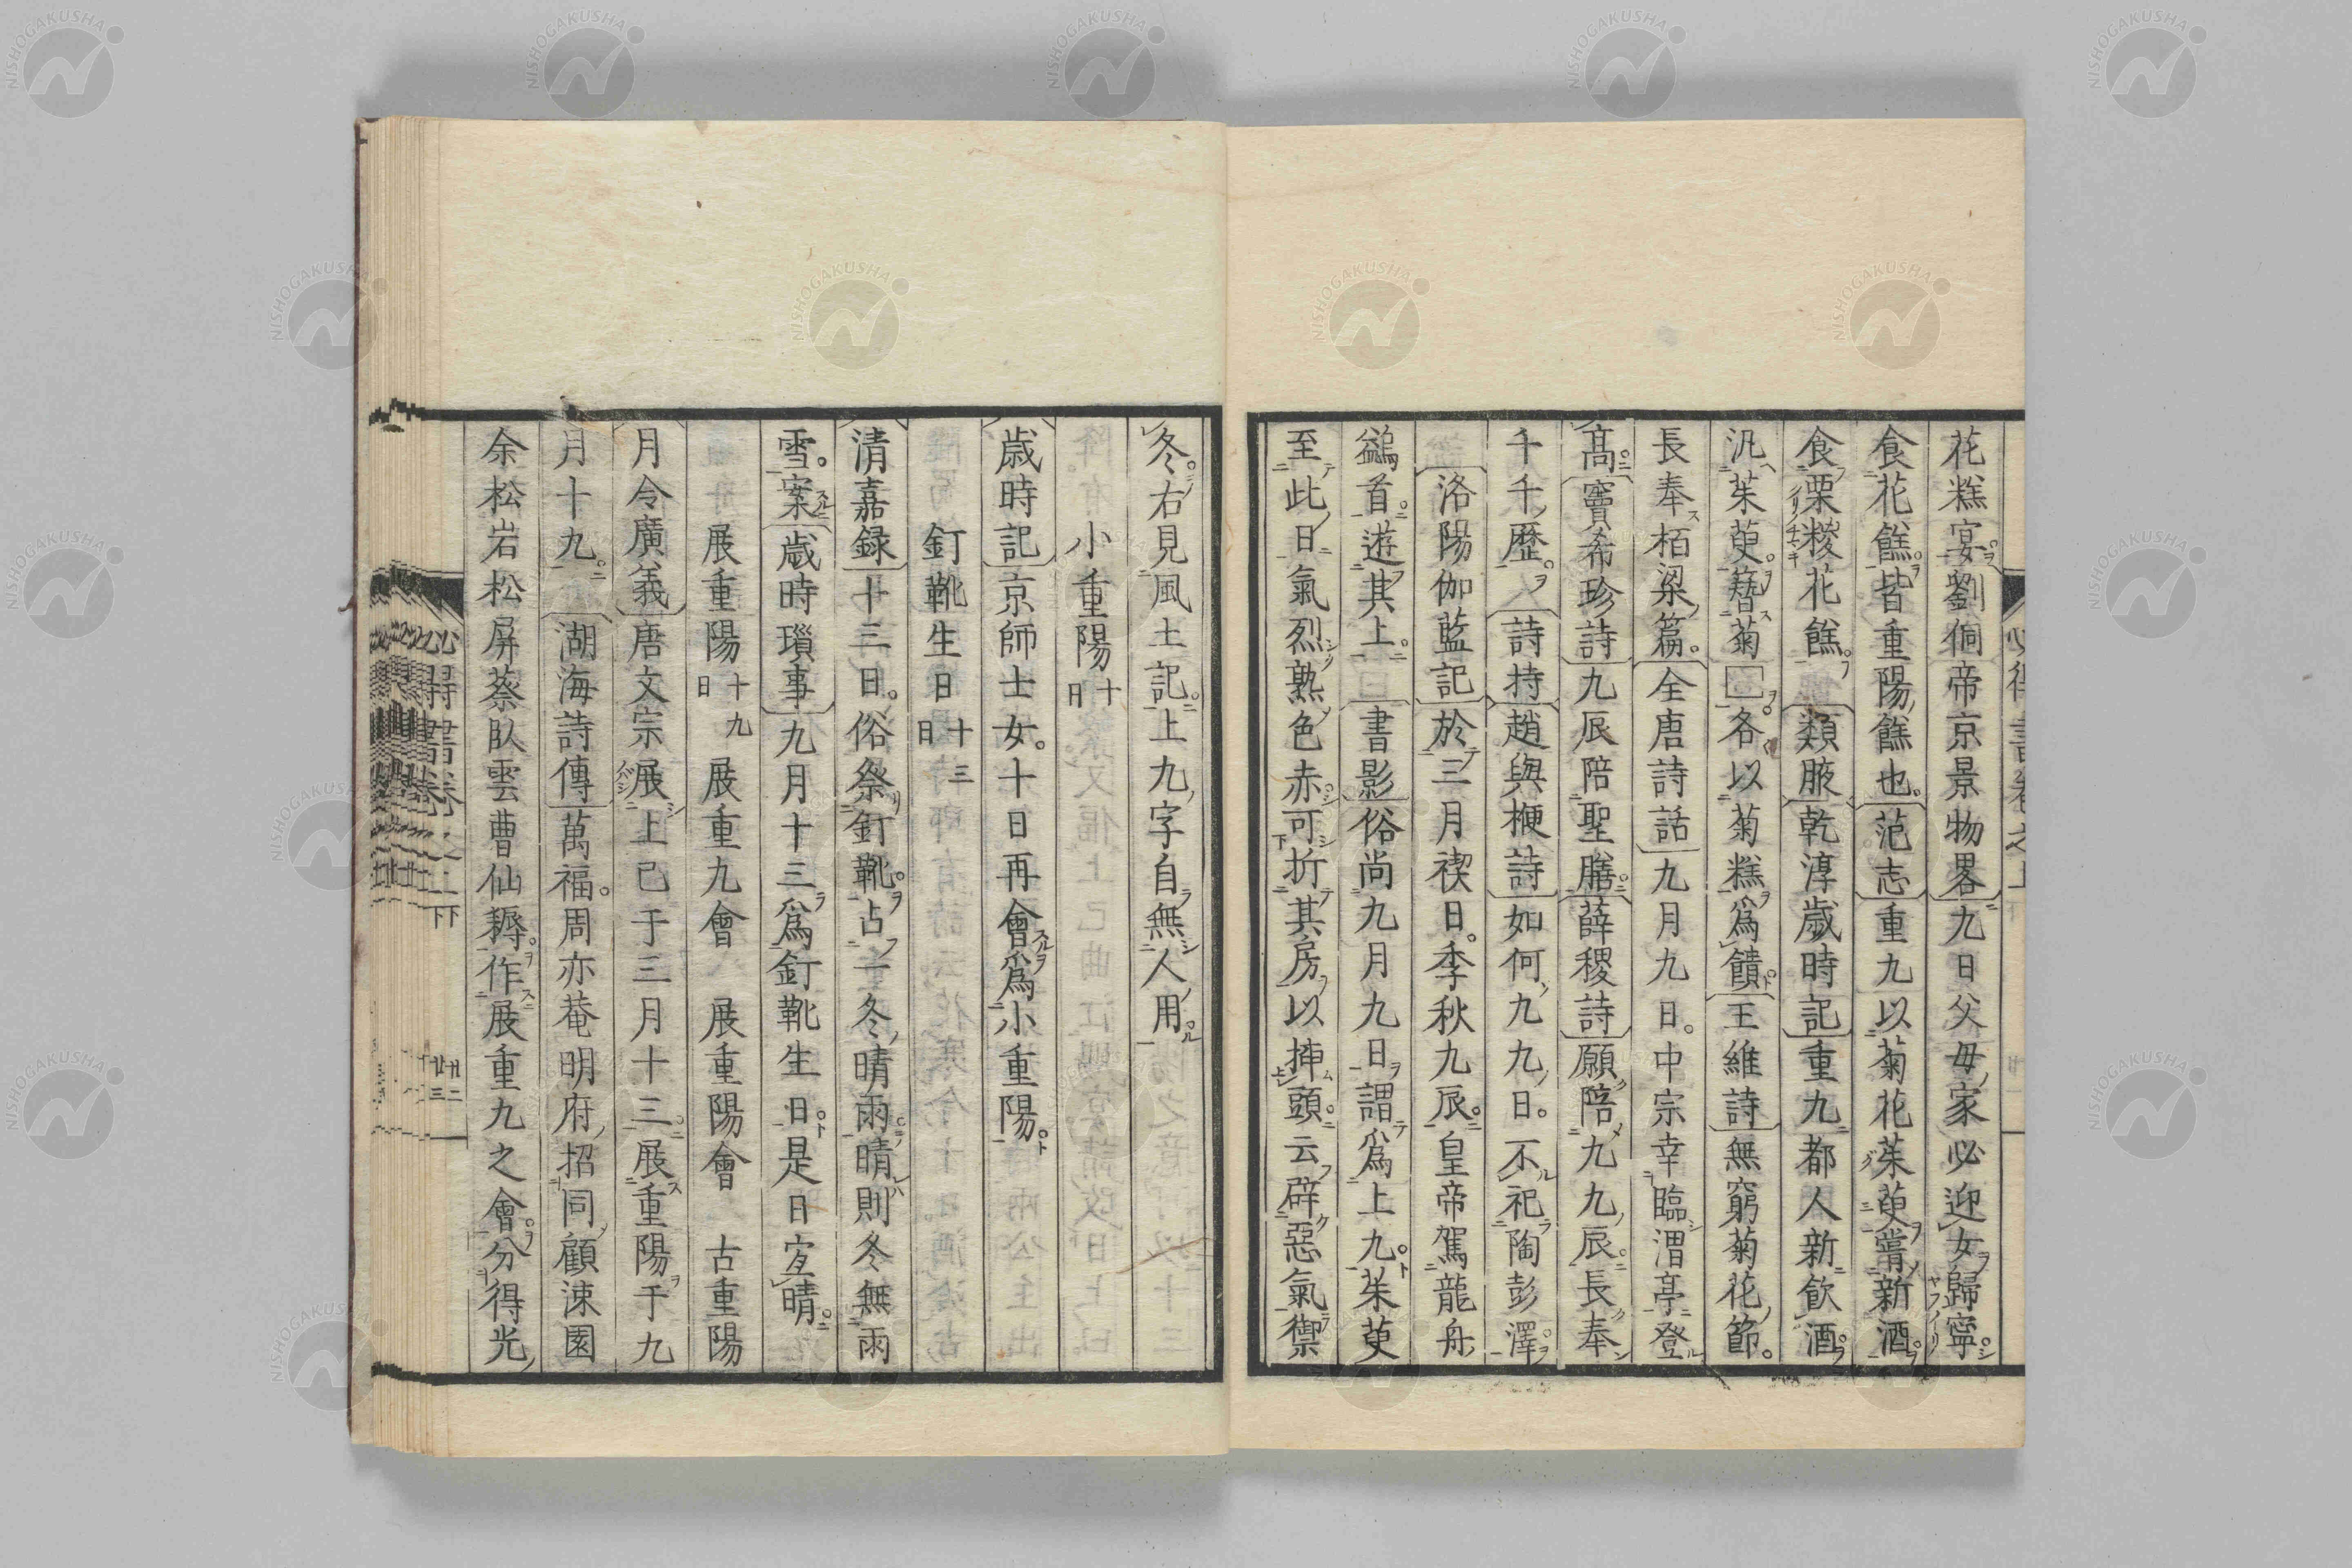 花糕宴劉侗帝京景物畧九日父母家必迎女歸寧
食花餻皆重陽餻也范志重九以菊花茱萸甞新酒
食栗糉花餻類腋乾淳歲時記重九都人新飲酒
汎茱萸簪菊各以菊糕爲饋王維詩無窮菊花節
長奉栢梁篇全唐詩話九月九日中宗幸臨渭亭登
高竇希珍詩九辰陪聖膳薛稷詩願陪九九辰長奉
千千歷詩持趙與楩詩如何九九日不祀陶彭澤
洛陽伽藍記於三月禊日季秋九辰皇帝駕龍舟
鷁首遊其上書影俗尚九月九日謂爲上九茱萸
至此日氣烈熟色赤可折其房以揷頭云辟惡氣禦
冬右見風土記上九字自無人用
小重陽十日
歳時記京師士女十日再會爲小重陽
釘靴生日十三日
清嘉録十三日俗祭釘靴占一冬晴雨晴則冬無雨
雪案歲時瑣事九月十三爲釘靴生日是日宜晴
展重陽十九日 展重九會 展重陽會 古重陽
月令廣義唐文宗展上巳于三月十三展重陽于九
月十九湖海詩傳萬福周亦菴明府招同顧涑園
余松岩松屏蔡臥雲曹仙耨作展重九之會分得光
NISHOGAKUSHA